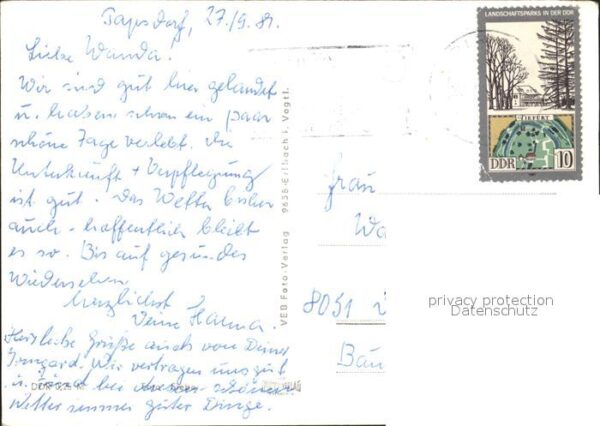 27./9. 81.
Liebe Wanda!
Wir sind gut hier gelandet
u. haben schon ein paar
schöne Tage verlebt. Die
Unterkunft + Verpflegung
ist gut. Das Wetter bisher
auch - hoffentlich bleibt
es so. Bis auf gesundes
Wiedersehen
herzlichst
Deine Hanna.
Herzliche Grüße auch von Deiner
Irmgard. Wir vertragen uns gut
u. sind bei dieser schönen
Wetter immer guter Dinge.
VEB Foto-Verlag 9658 Erlbach i. Vogtl.
LANDSCHAFTSPARKS IN DER DDR
TIEFURT
DDR 10
Frau
Wa
8051
privacy protection
Datenschutz